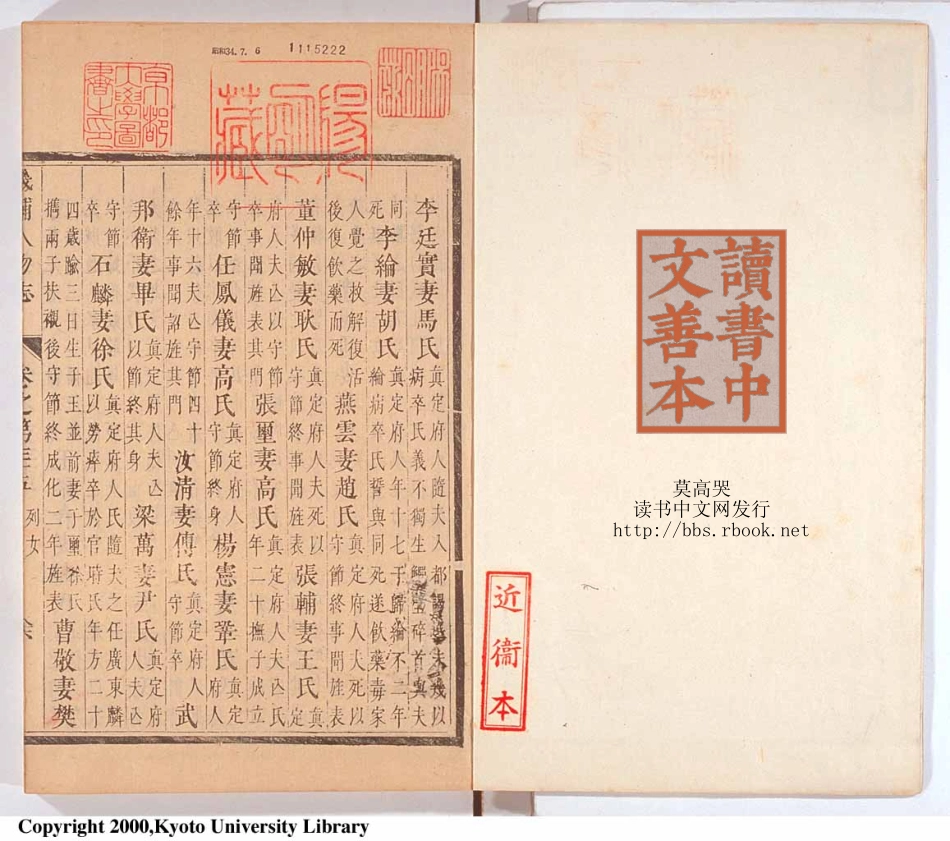 昭和34.7.6 1115222
京都大學圖書之印
陽明藏
李廷實妻馬氏真定府人隨夫入都
夫幾以
病卒氏義不獨生觸壁碎首與夫
同死李綸妻胡氏真定府人年十七于歸綸不二年
綸病卒氏誓與同死遂飲藥毒家
人覺之救解復活
後復飲藥而死燕雲妻趙氏真定府人夫死以
守節終事聞旌表
董仲敏妻耿氏真定府人夫死以
守節終事聞旌表張輔妻王氏真定
府人夫亡以守節
卒事聞旌表其門張璽妻高氏真定府人夫亡氏
年二十撫子成立
守節卒任鳳儀妻高氏真定府人
守節終身楊憲妻鞏氏真定府人
年十六夫亡守節四十
餘年事聞詔旌其門汝清妻傅氏真定府人
守節卒武
邦衛妻畢氏真定府人夫亡
以節終其身梁萬妻尹氏真定府人夫亡
守節卒石麟妻徐氏真定府人氏隨夫之任廣東麟
以勞瘁卒於官時氏年方二十
四歲踰三日生子玉並前妻子璽
攜兩子扶櫬後守節終成化二年旌表曹敬妻樊
畿輔人物志
卷之第三十五
列女
讀書中
文善本
莫高哭
读书中文网发行
http://bbs.rbook.net
近衞本
Copyright 2000,Kyoto University Library